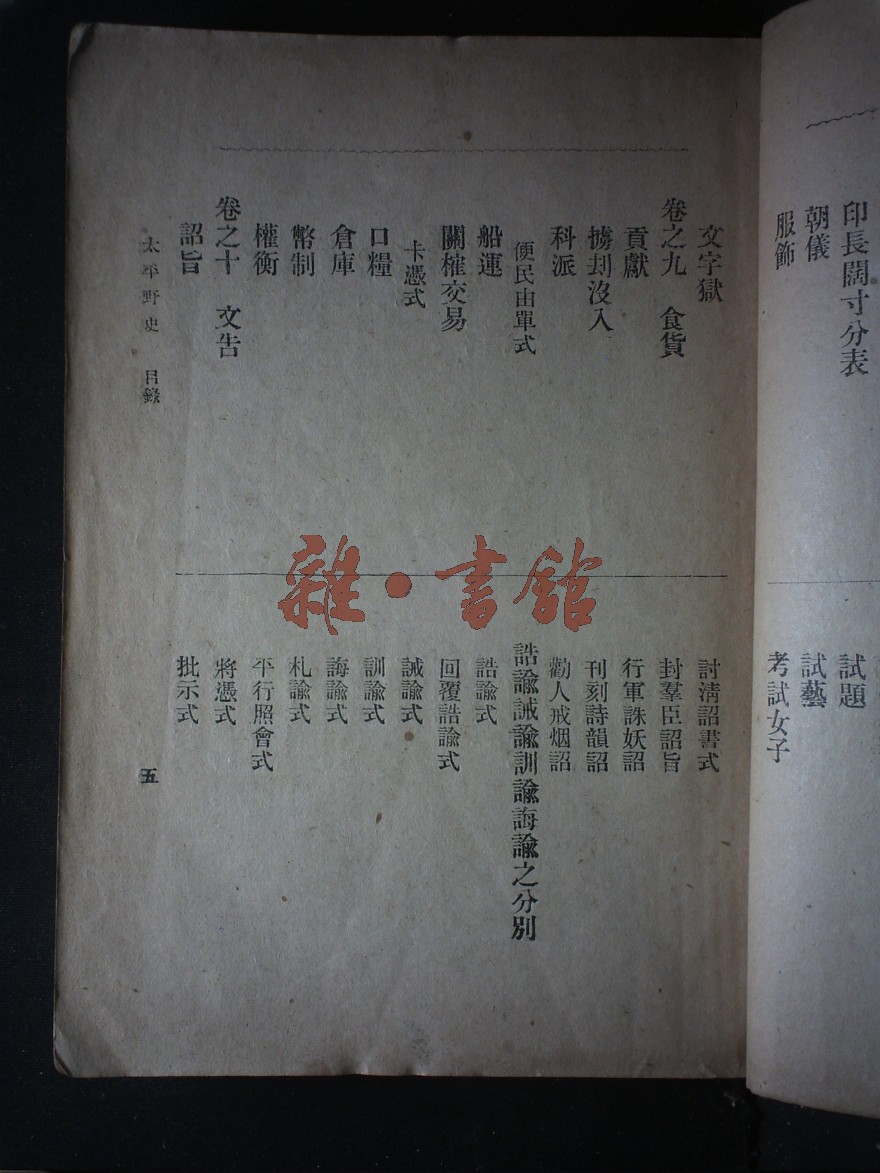 印長闊寸分表
朝儀
服飾
試題
試藝
考試女子
文字獄
卷之九 食貨
貢獻
擄刦沒入
科派
便民由單式
船運
關榷交易
卡憑式
口糧
倉庫
幣制
權衡
卷之十 文告
詔旨
討淸詔書式
封羣臣詔旨
行軍誅妖詔
刊刻詩韻詔
勸人戒烟詔
誥諭誡諭訓諭誨諭之分別
誥諭式
回覆誥諭式
誡諭式
訓諭式
誨諭式
札諭式
平行照會式
將憑式
批示式
太平野史 目錄
五
雜·書館